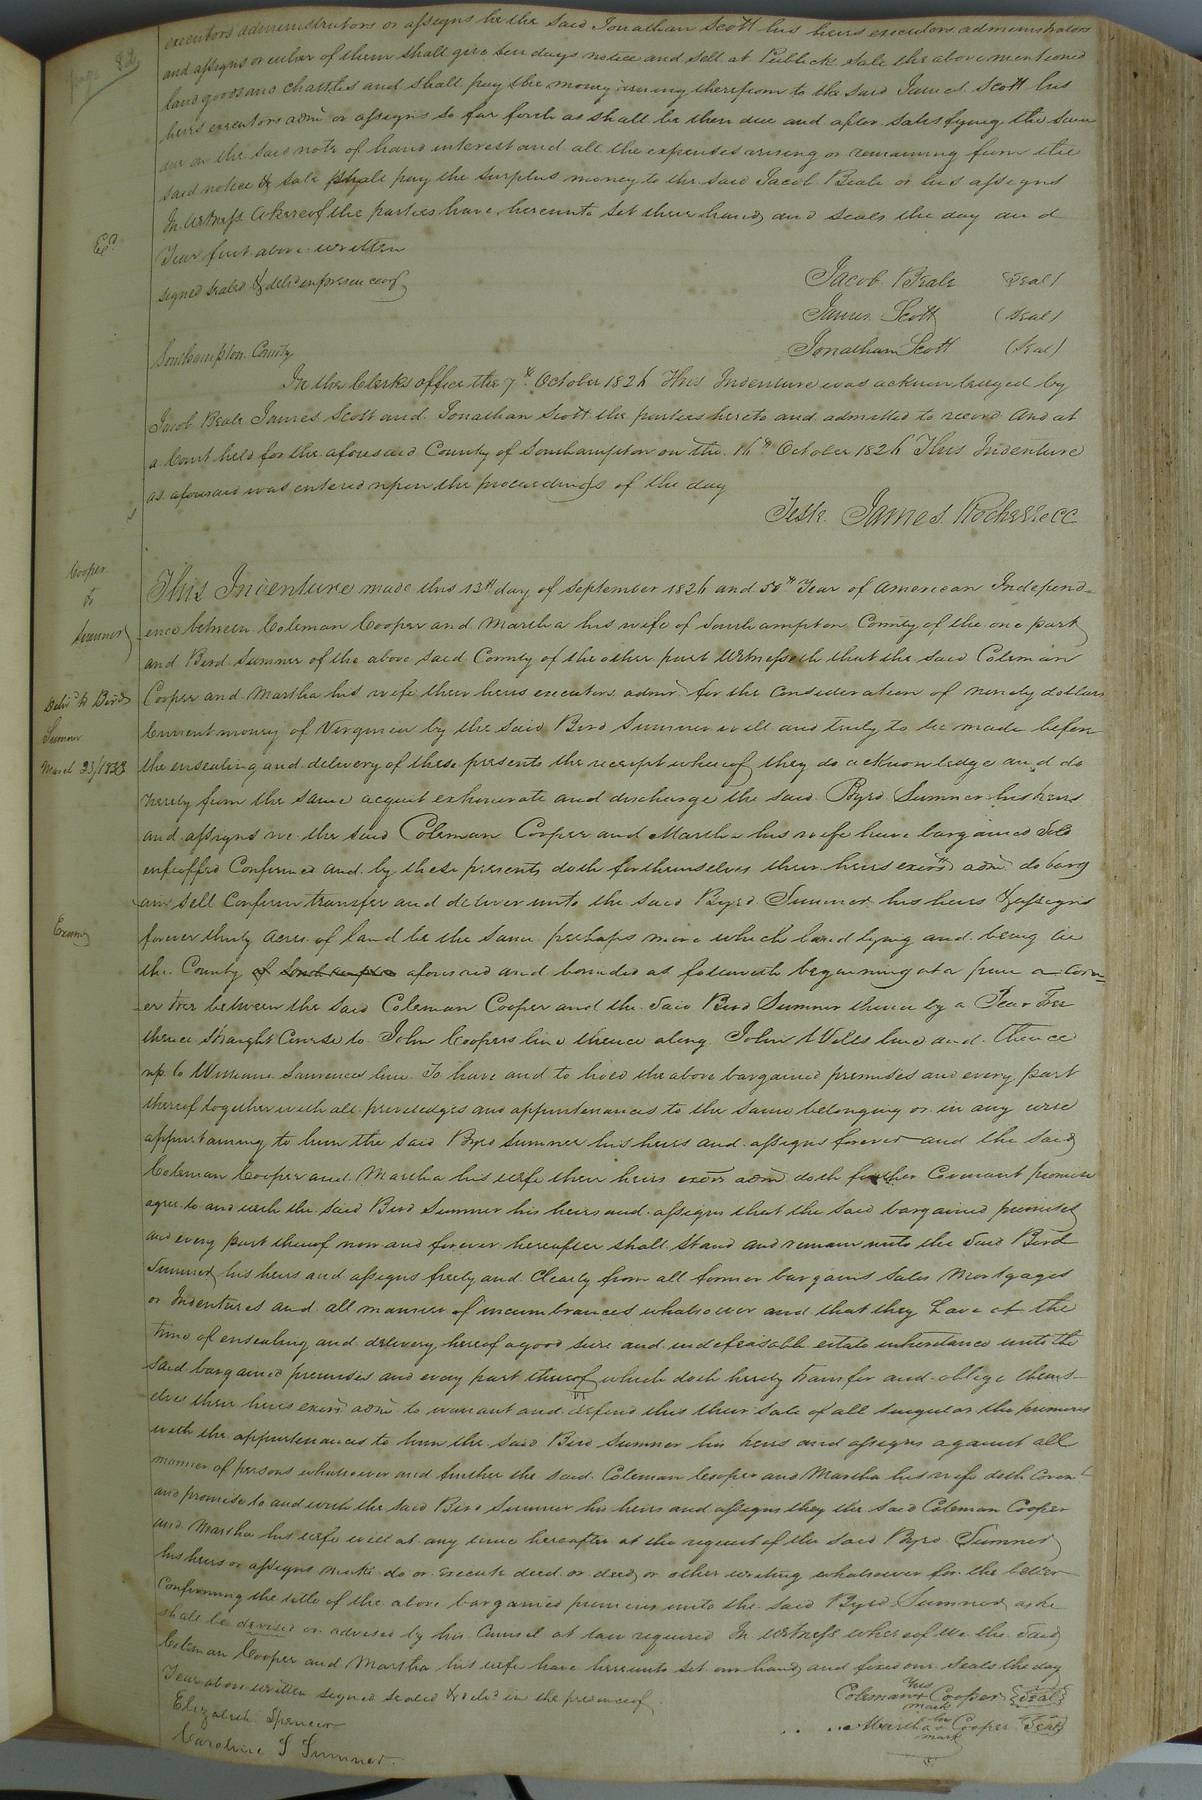 page 82
executors administrators or assigns he the said Jonathan Scott his heirs executors administrators
and assigns or either of them shall give ten days notice and sell at Publick sale the above mentioned
land goods and chattles and shall pay the money arising therefrom to the said James Scott his
heirs executors admr or assigns so far forth as shall be then due and after satesfying the sum
due on the said note of hand interest and all the expenses arising or remaining from the
said notice & sale shall pay the surplus money to the said Jacob Beale or his assigns
In Witness Whereof the parties have hereunto set their hands and seals the day and
Year first above written
Exd
signed sealed & deld in presence of
Jacob Beale (Seal)
James Scott (Seal)
Jonathan Scott (Seal)
Southampton County
In the Clerks office the 7th October 1826 This Indenture was acknowledged by
Jacob Beale James Scott and Jonathan Scott the parties hereto and admitted to record And at
a Court held for the aforesaid County of Southampton on the 16th October 1826 This Indenture
as aforesaid was entered upon the proceedings of the day
Teste James Rochelle CC
Cooper
to
Sumner
This Indenture made this 13th day of September 1826 and 50th Year of American Independ-
ence between Coleman Cooper and Martha his wife of Southampton County of the one part
and Bird Sumner of the above said County of the other part Witnesseth that the said Coleman
Cooper and Martha his wife their heirs executors admr for the Consideration of ninety dollars
Delivd to Bird
Sumner
March 23/1833
Current money of Virginia by the said Bird Sumner well and truly to be made before
the ensealing and delivery of these presents the receipt whereof they do acknowledge and do
hereby from the same acquit exhonerate and discharge the said Byrd Sumner his heirs
and assigns we the said Coleman Cooper and Martha his wife have bargained Sold
enfeoffed Confirmed and by these presents doth for themselves their heirs exors admr do barg
ain sell Confirm transfer and deliver unto the said Byrd Sumner his heirs & assigns
Examd
forever thirty acres of land be the same perhaps more which land lying and being in
the County of Southampton aforesaid and bounded as followeth begginning at a pine a Corn-
er tree between the said Coleman Cooper and the said Bird Sumner thence by a Pear Tree
thence straight Course to John Coopers line thence along John Wills line and thence
up to William Lawrences line To have and to hold the above bargained premises and every part
thereof together with all priviledges and appurtenances to the same belonging or in any wise
appurtaining to him the said Byrd Sumner his heirs and assigns forever and the said
Coleman Cooper and Martha his wife their heirs exors admr doth further Covenant promise
agree to and with the said Bird Sumner his heirs and assigns that the said bargained premises
and every part thereof now and forever hereafter shall stand and remain unto the said Bird
Sumner his heirs and assigns freely and Clearly from all former bargains Sales Mortgages
or Indentures and all manner of incumbrances whatsoever and that they have at the
time of ensealing and delivery hereof a good sure and indefeasable estate inheritance unto the
said bargained premises and every part thereof which doth hereby transfer and oblige thems-
elves their heirs exors admr to warrant and defend this their sale of all singular the premises
with the appurtenances to him the said Bird Sumner his heirs and assigns against all
manner of persons whatsoever and further the said Coleman Cooper and Martha his wife doth Covent
and promise to and with the said Bird Sumner his heirs and assigns they the said Coleman Cooper
and Martha his wife will at any time hereafter at the request of the said Byrd Sumner
his heirs or assigns make do or execute deed or deeds or other writing whatsoever for the better
Confirming the title of the above bargained premises unto the said Byrd Sumner as he
shall be devised or advised by his Council at law required In Witness whereof We the said
Coleman Cooper and Martha his wife have hereunto set our hands and fixed our seals the day
Year above written signed sealed & deld in the presence of
Elizabeth Spencer
Caroline S Sumner
his
Coleman + Cooper {Seal}
mark
her
Martha + Cooper {Seal}
mark